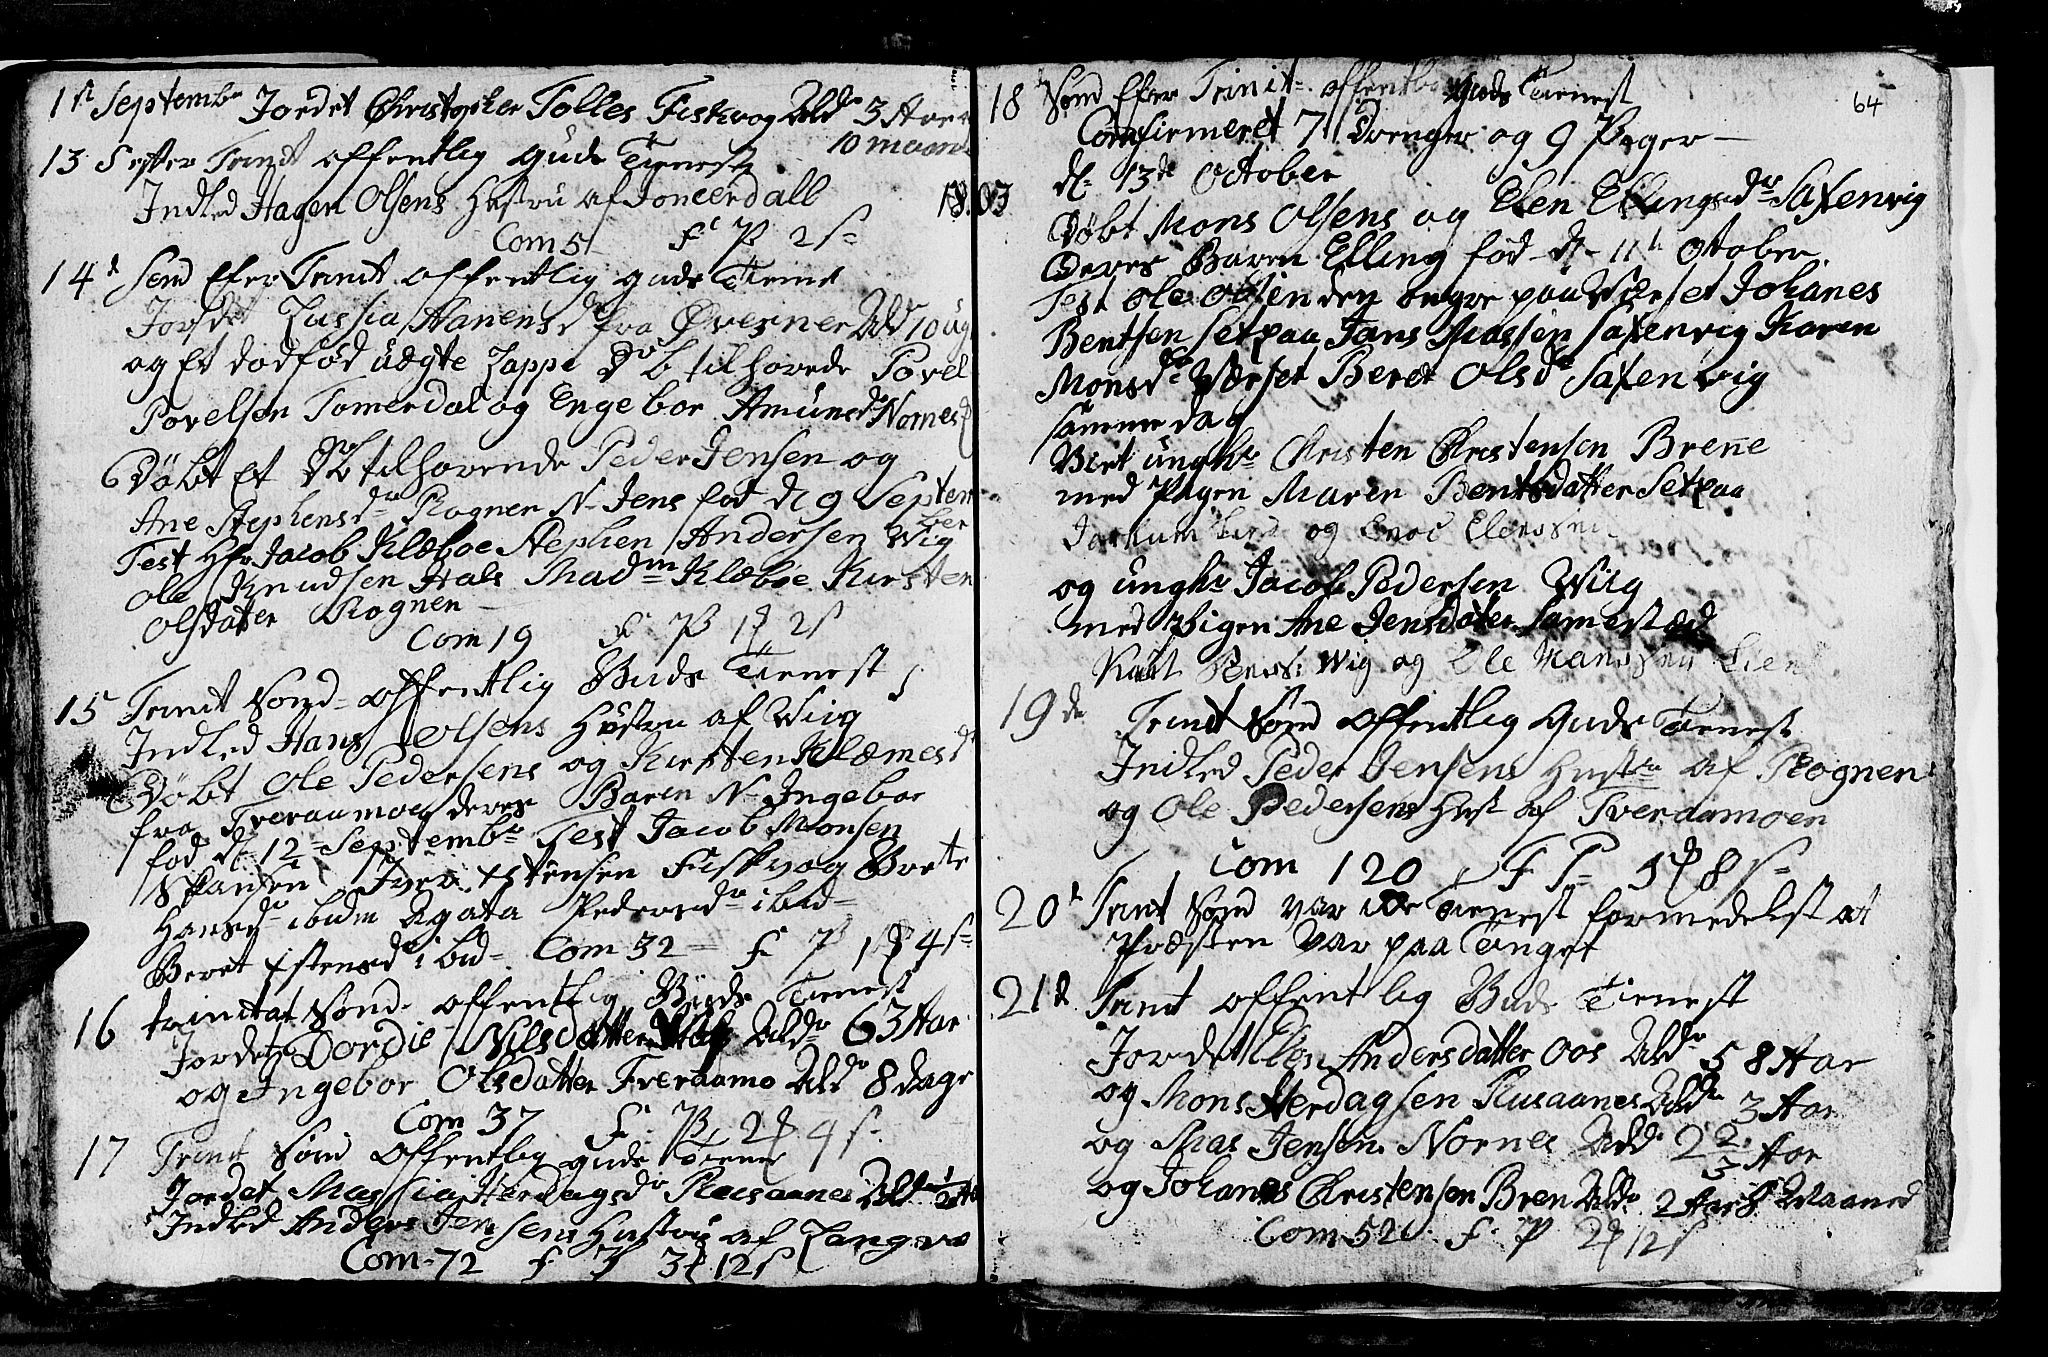 11t Septembr Jordet Christopher Tolles Fiskvog Aldr 3 Aar
10 maan
13 S efter Trinit offentlig Guds Tienest
Indled Hagen Olsens Hustru af Joncerdall
Com 5 F. P 2 s
14d Sønd Efer Trinit offentlig Guds Tienest
Jordet Zussia Hanensd fra Øvesner Ald 10 ug
og Et dødfød uægte Zappe tilhørede Povel
Povelsen Tomerdal og Engebor Amunsd Nornes
Døbt Et tilhørende Peder Jensen og
Ane Stephensdr Rognen N. Jens fød d 9 Septem
ber
Test Hr Jacob Klæboe Stephen Andersen Wig
Ole Knudsen Hals Madm Klæboe Kirsten
Olsdatter Rognen
Com 19 F. P 1 2 s
15 Trinit Sønd offentlig Guds Tienest
Indled Hans Olsens Hustru af Wiig
Døbt Ole Pedersens og Kirsten Klæmesdr
fra Tveraamoen deres Baren N. Ingebor
fød d. 12 Septembr Test Jacob Monsen
Skansen Iver Estensen Fiskvog Birte
Hansdr ibidm Agata Pedersdr ibid
Beret Estensdr ibid Com 32 F. P 1 4 s
16 trinitat Sønd offentlig Guds Tienest
Jordet Dordie Nilsdatter Aldr 63 Aar
og Ingebor Olsdatter Tveraamo Aldr 8 dage
Com 37 F. P. 2 4 s
17 Trinit Sønd offentlig Guds Tienes
Jordet Massia Herdagsdr Rusaanes Ald
Indled Anders Jensens Hustru af Zangvs
Com 72 F. P 3 12 s
1803
64
18 Sønd Efter Trinit offentl Guds Tienest
Comfirmeret 7 Drenger og 9 Piger
d. 13de October
Døbt Mons Olsens og Elen Ellingsdr Saxenvig
Deres Baren Elling fød d. 11te Otober
Test Ole Olsen den ongre paa Værset Johanes
Bentsen Setpaa Hans Massen Saxenvig Karen
Monsdr Værset Beret Olsdr Saxenvig
samme dag
Viet ungkr Christen Christensen Brene
med Pigen Maren Bentsdatter Setpaa
og Enoc
og ungkr Jacob Pedersen Wiig
med Pigen Ane Jensdater samested
Wig og Ole Hanssen
19de Trinit Sønd offentlig Guds Tienest
Indled Peder Jensens Hustru af Rognen
og Ole Pedersens Hust af Tveraamoen
Com 120 F P 5 8 s
20d Trinit Sønd var icke Tienest formedelst at
Præsten var paa Tinget
21d Trinit offentlig Guds Tienest
Jordet Elen Andersdatter Oos Aldr 58 Aar
og Mons Herdagsen Rusaanes Aldr 3 Aar
og Mas Jensen Nornes Ald 2 2/3 Aar
og Johanes Christensen Bren Aldr 2 Aar 8 Maaned
Com 52 F. P 2 12 s